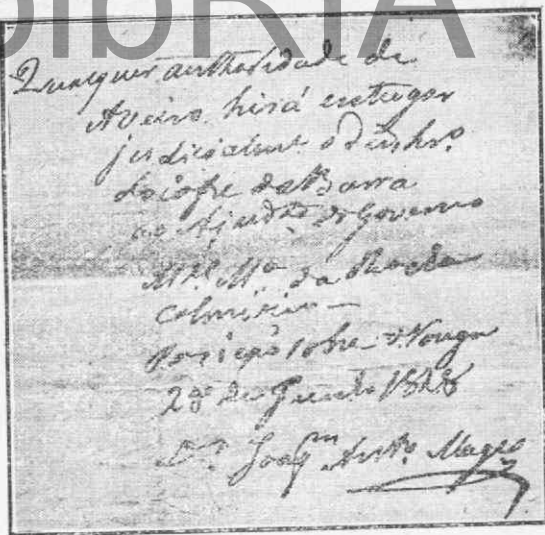 Qualquer authoridade de
Aveiro hirá entregar
judicialmente o dinhro
do cofre da Barra
ao Ajudte do Governo
Mel Ma da Rocha
Colmieiro —
Posição sobre o Vouga
28 de Junho 1828
Joaqm Anto Magro